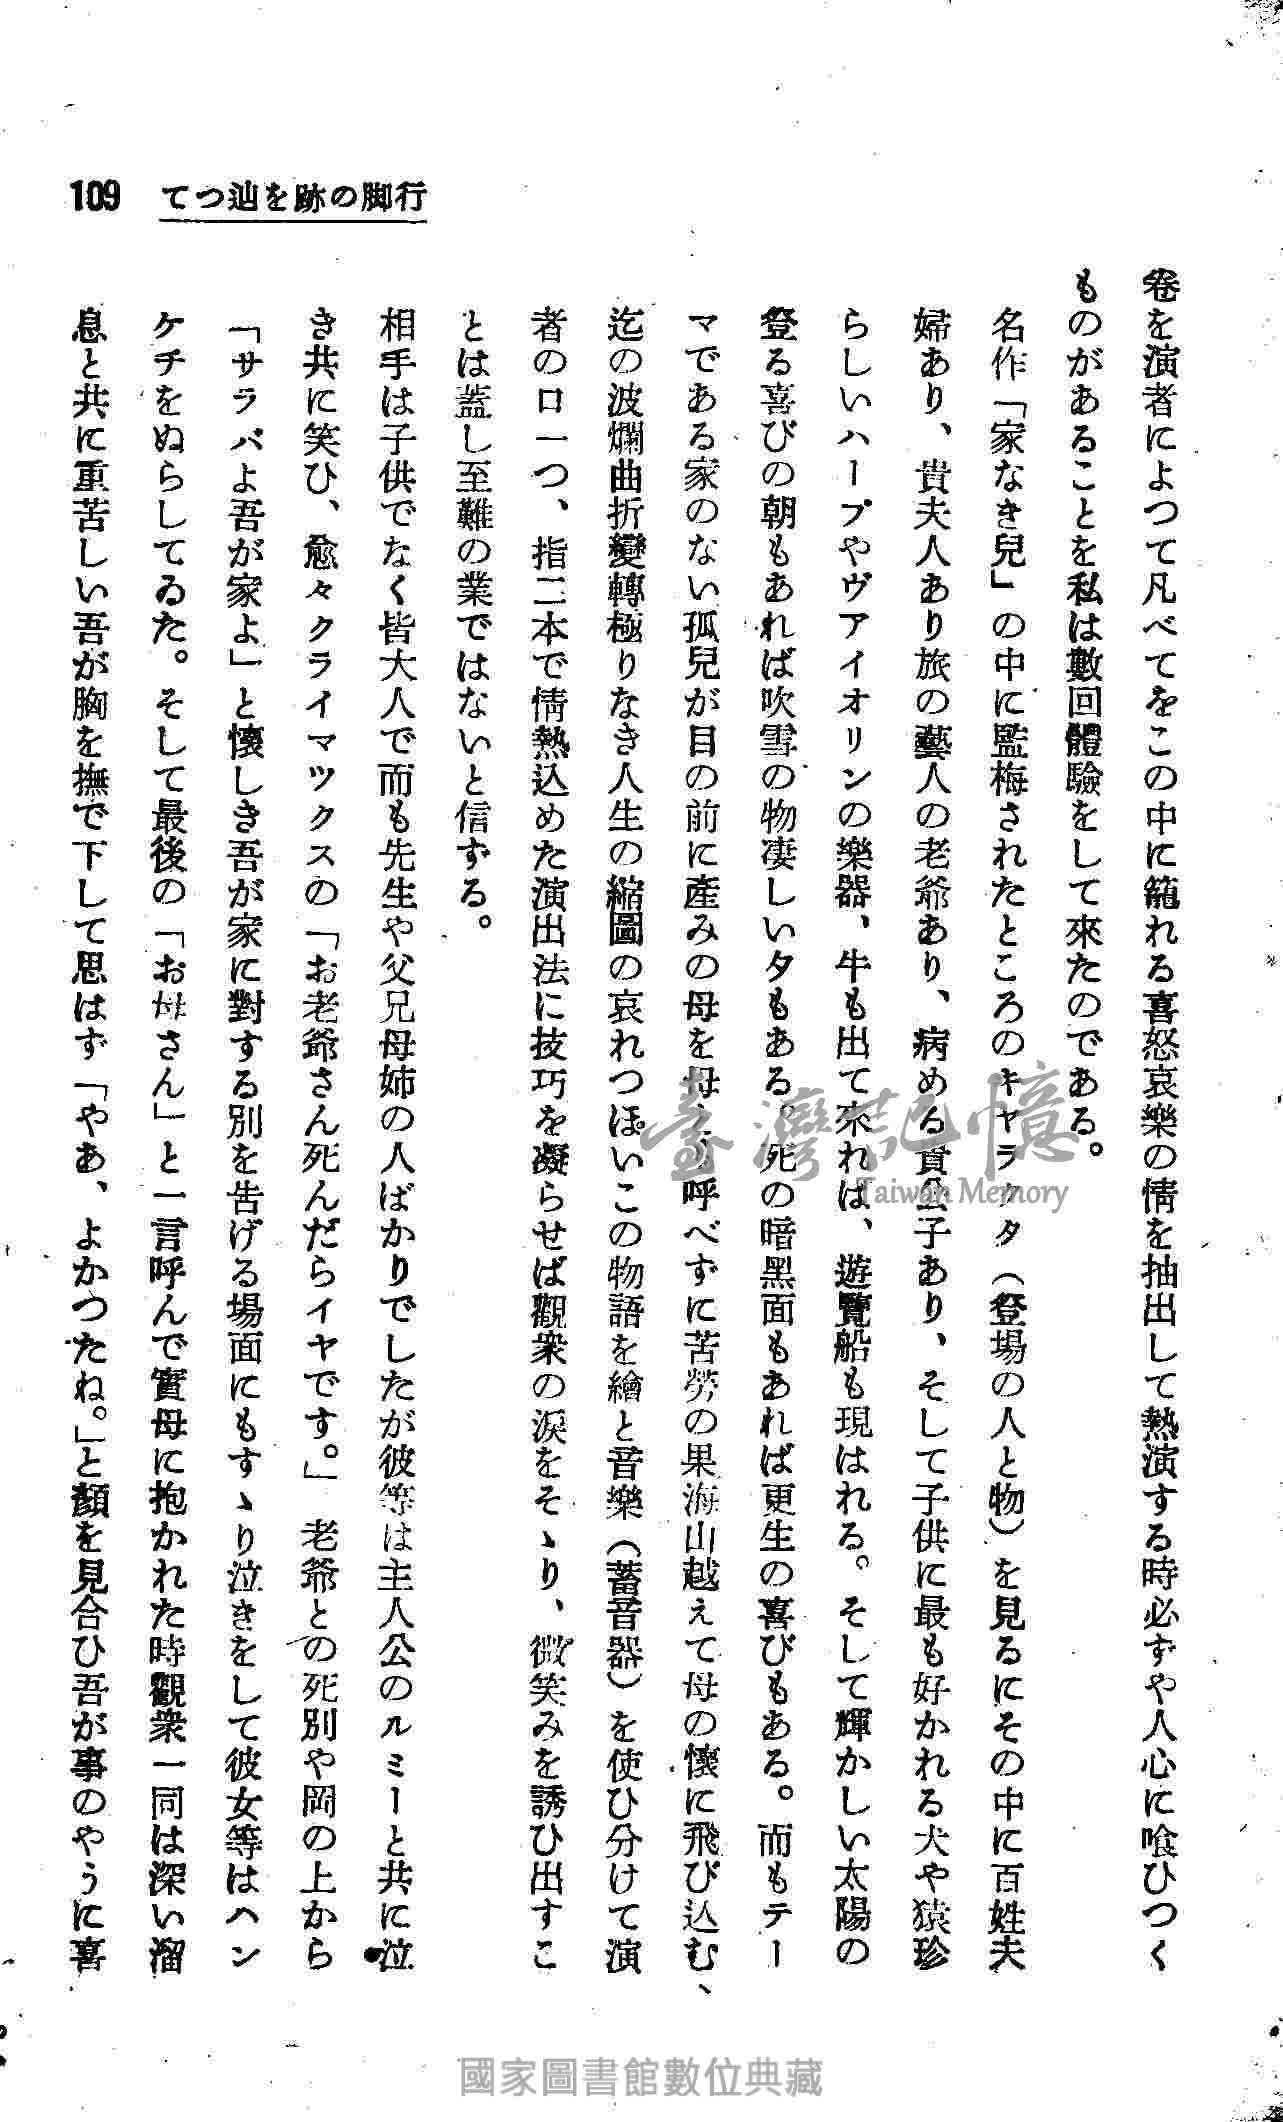 109 行脚の跡を辿つて
卷を演者によつて凡べてをこの中に籠れる喜怒哀樂の情を抽出して熱演する時必ずや人心に喰ひつく
ものがあることを私は數回體驗をして來たのである。
名作「家なき兒」の中に監梅されたところのキヤラクタ（登場の人と物）を見るにその中に百姓夫
婦あり、貴夫人あり旅の藝人の老爺あり、病める貴公子あり、そして子供に最も好かれる犬や猿珍
らしいハープやヴアイオリンの樂器、牛も出て來れば、遊覽船も現はれる。そして輝かしい太陽の
登る喜びの朝もあれば吹雪の物凄しい夕もある。死の暗黑面もあれば更生の喜びもある。而もテー
マである家のない孤兒が目の前に產みの母を母より呼べずに苦勞の果海山越えて母の懷に飛び込む、
迄の波爛曲折變轉極りなき人生の縮圖の哀れつぽいこの物語を繪と音樂（蓄音器）を使ひ分けて演
者の口一つ、指二本で情熱込めた演出法に技巧を凝らせば觀衆の淚をそゝり、微笑みを誘ひ出すこ
とは蓋し至難の業ではないと信ずる。
相手は子供でなく皆大人で而も先生や父兄母姉の人ばかりでしたが彼等は主人公のルミーと共に泣
き共に笑ひ、愈々クライマツクスの「お老爺さん死んだらイヤです。」老爺との死別や岡の上から
「サラバよ吾が家よ」と懷しき吾が家に對する別を告げる場面にもすゝり泣きをして彼女等はヘン
ケチをぬらしてゐた。そして最後の「お母さん」と一言呼んで實母に抱かれた時觀衆一同は深い溜
息と共に重苦しい吾が胸を撫で下して思はず「やあ、よかつたね。」と顏を見合ひ吾が事のやうに喜
臺灣記憶
Taiwan Memory
國家圖書館數位典藏